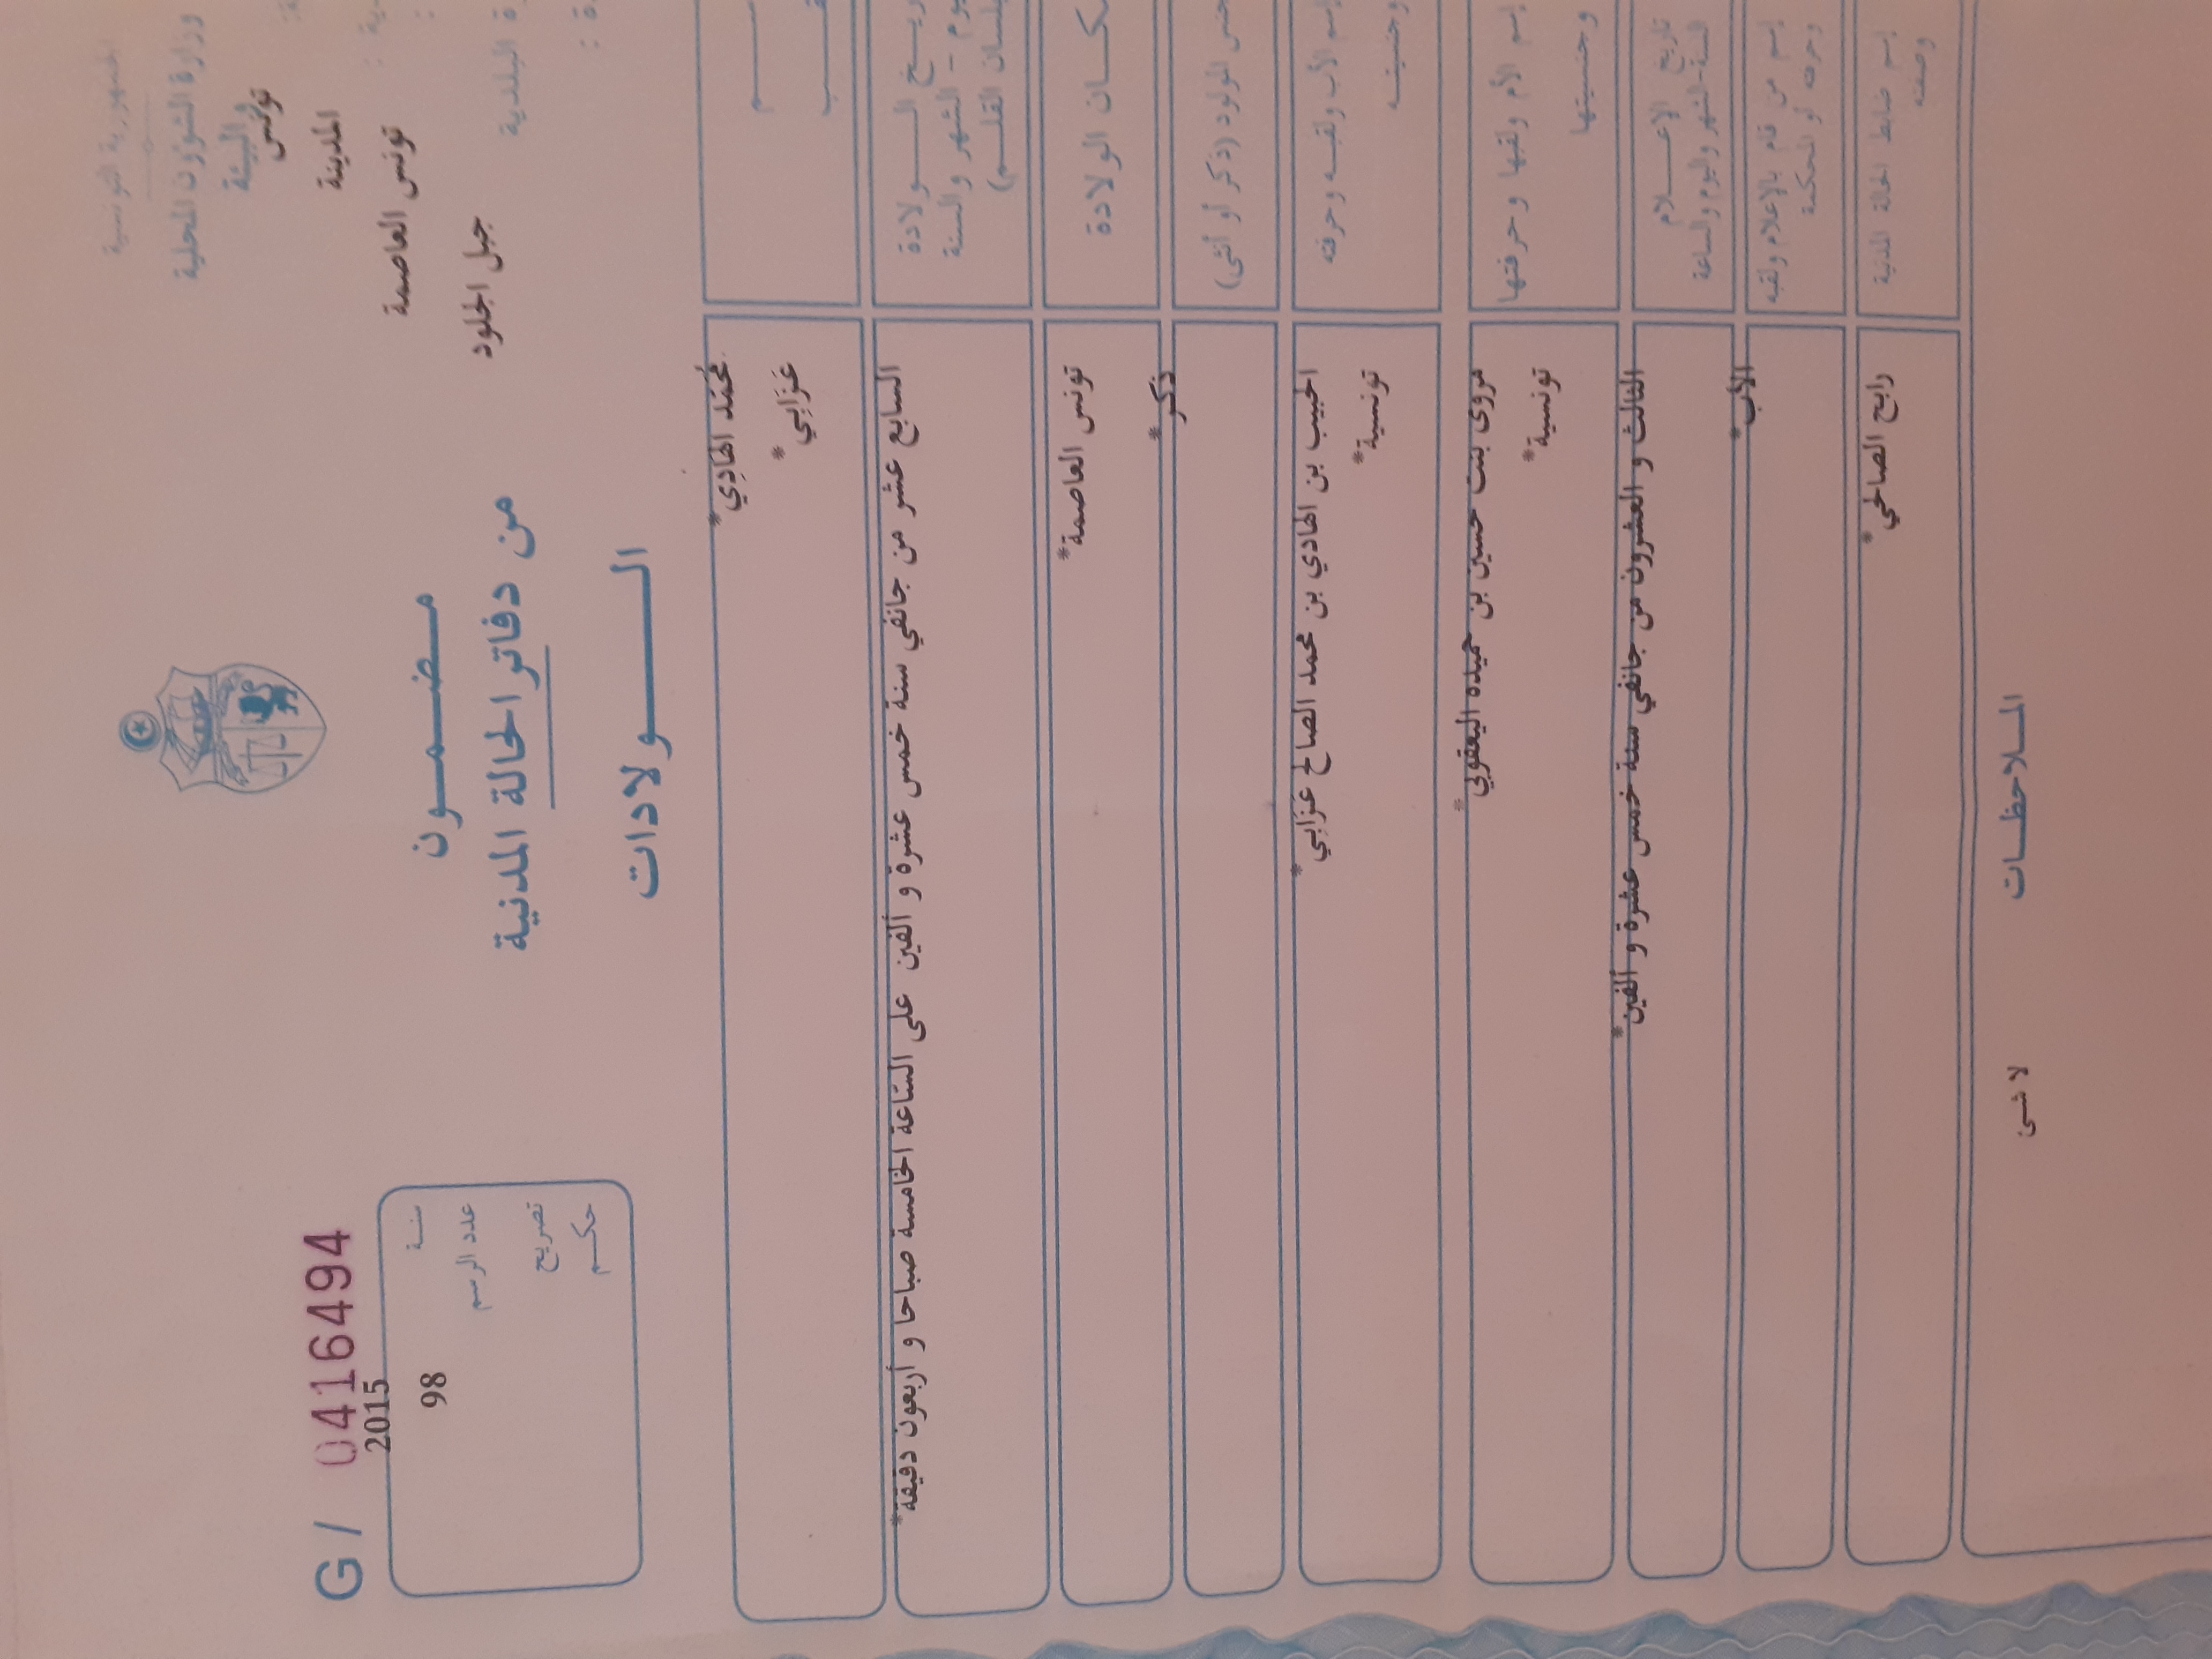 الجمهورية التونسية
وزارة الشؤون المحلية
والبيئة
تونس
المدينة
تونس العاصمة
جبل الجلود
G / 0416494
2015
سنة
98
عدد الرسم
تصريح
حكم
مضمون
من دفاتر الحالة المدنية
الولادات
محمد الهادي*
عزابي*
السابع عشر من جانفي سنة خمس عشرة و ألفين على الساعة الخامسة صباحا و أربعون دقيقة*
الولادة
يوم - الشهر والسنة
بلسان القلم)
مكان الولادة
تونس العاصمة*
جنس المولود (ذكر أو أنثى)
ذكر*
إسم الأب ولقبه وحرفته
وجنسيته
الحبيب بن الهادي بن محمد الصالح عزابي*
تونسية*
إسم الأم ولقبها وحرفتها
وجنسيتها
مروى بنت حسين بن حميده اليعقوبي*
تونسية*
تاريخ الإعلام
السنة-الشهر واليوم والساعة
الثالث و العشرون من جانفي سنة خمس عشرة و ألفين*
إسم من قام بالإعلام ولقبه
وحرفته أو المحكمة
الأب*
إسم ضابط الحالة المدنية
وصفته
رابح الصالحي*
الملاحظات
لا شئ